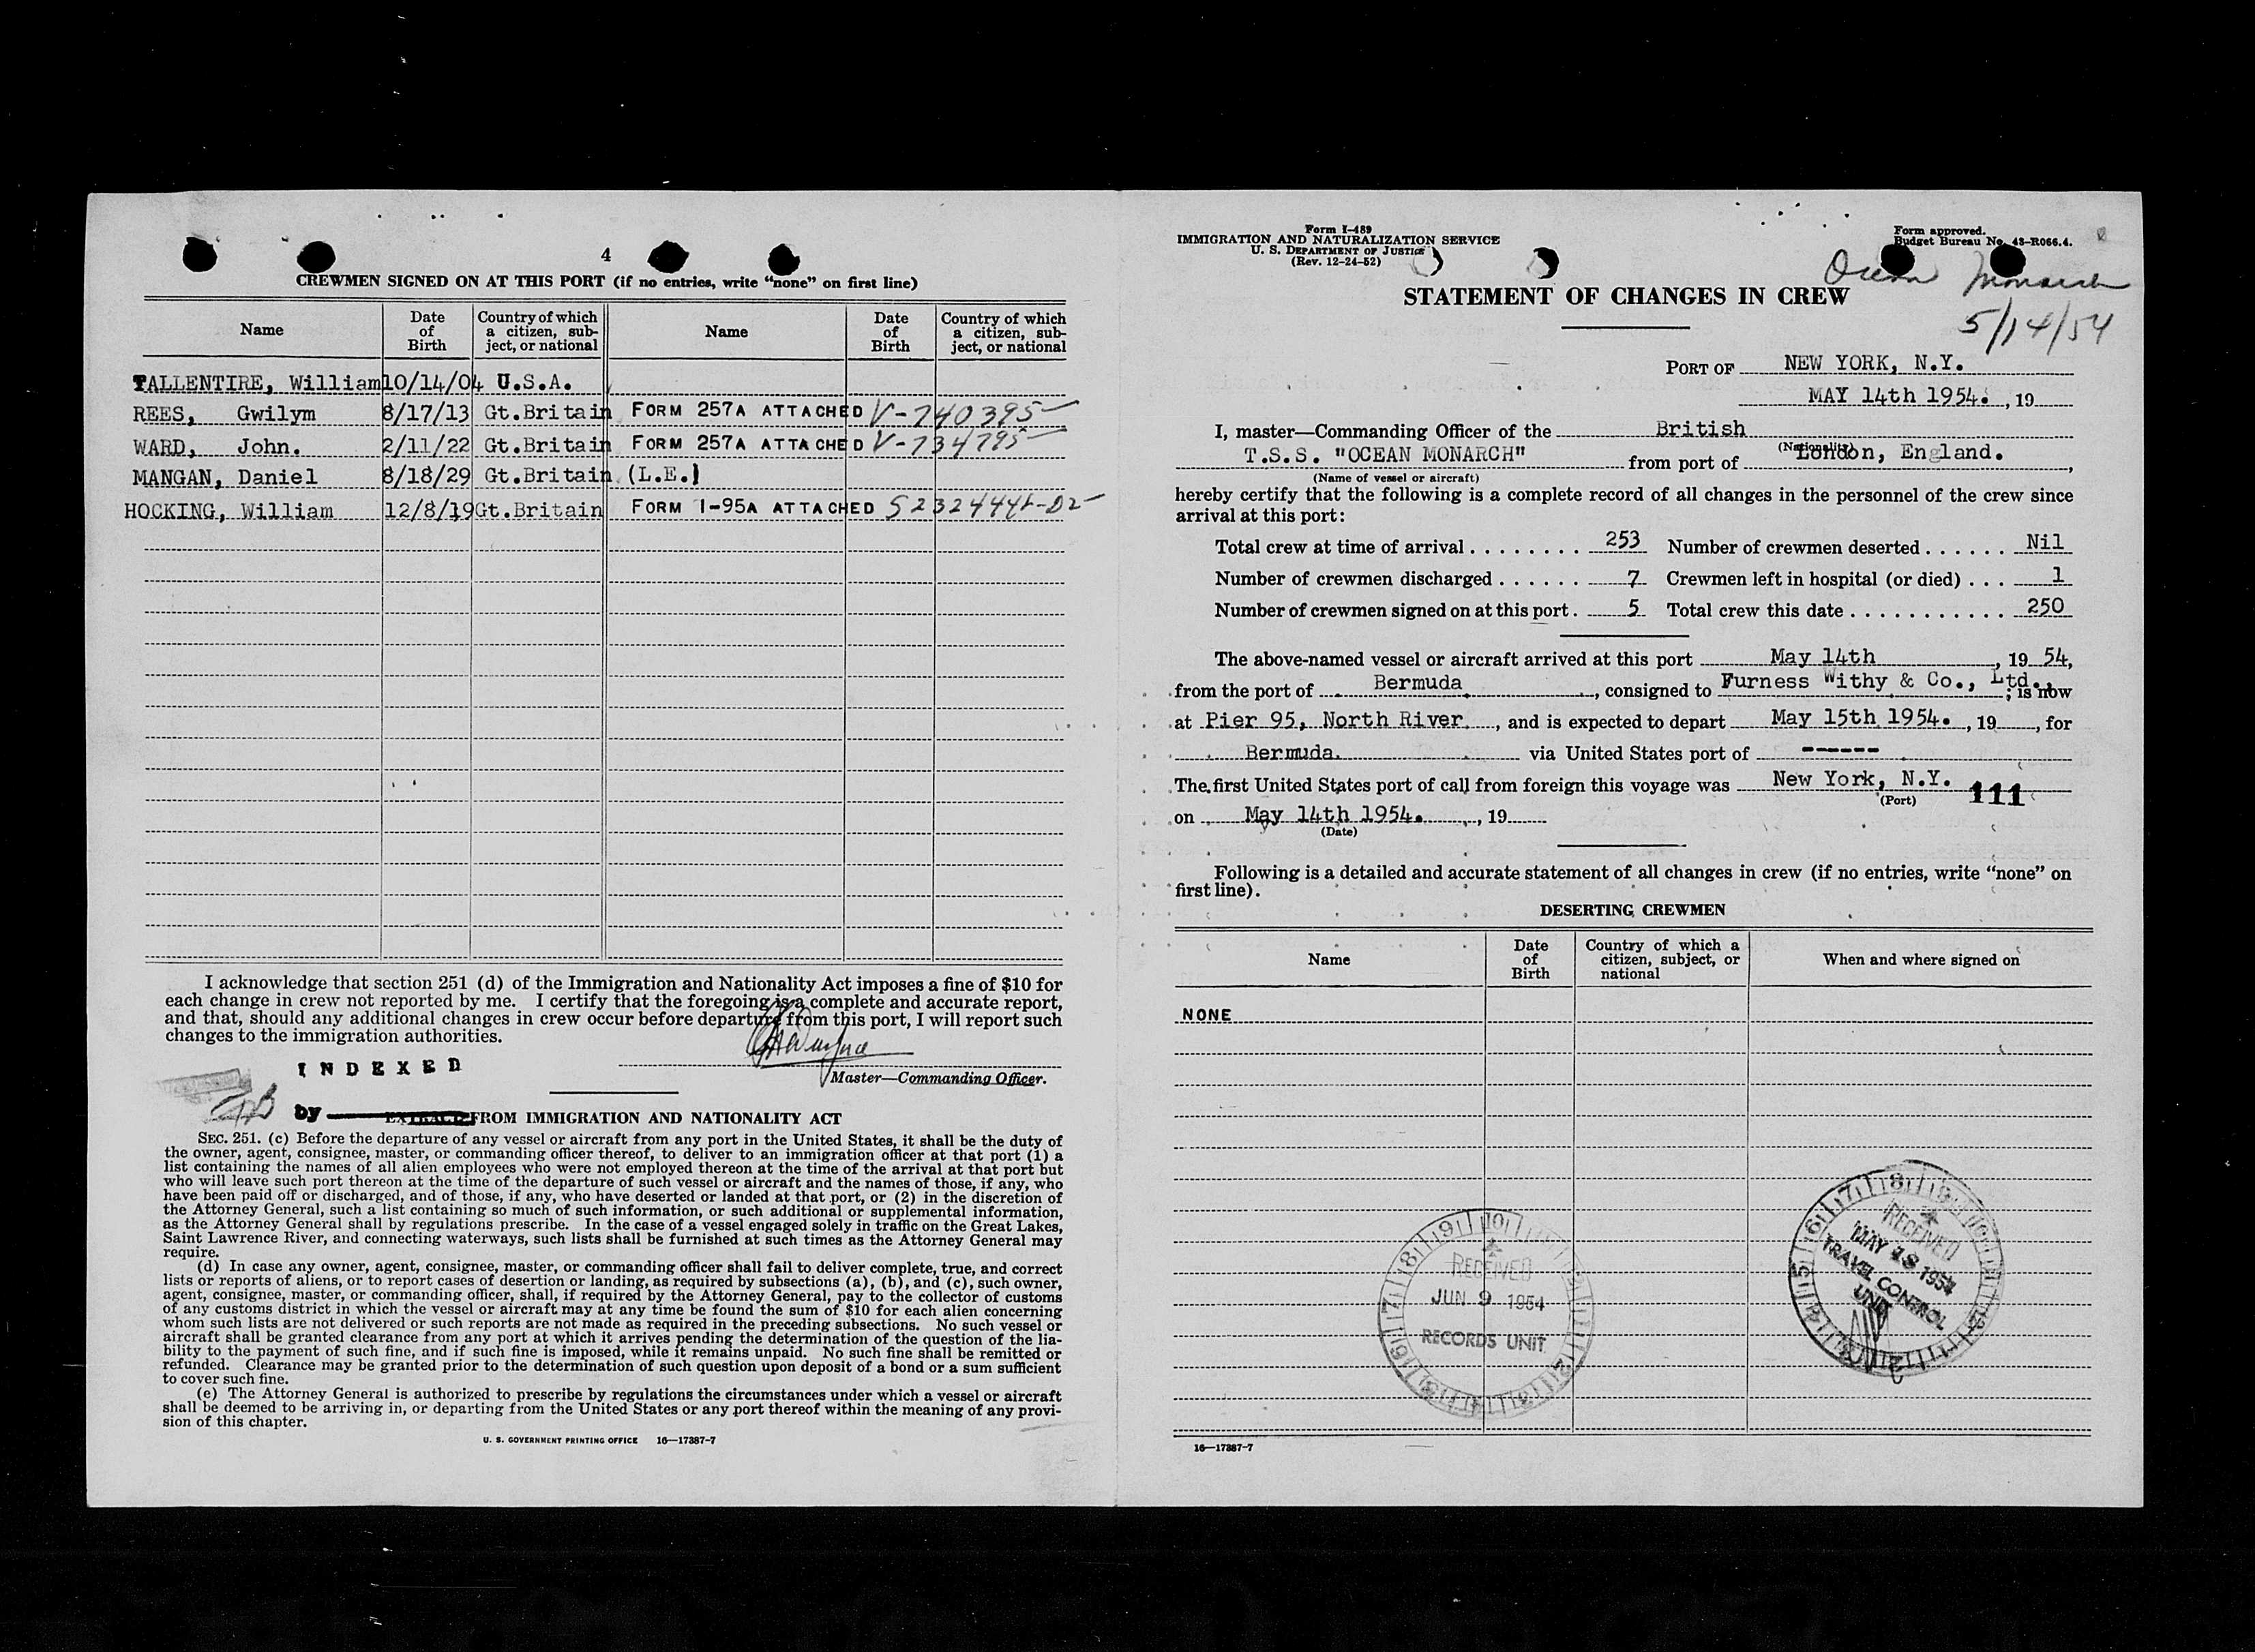 4
CREWMEN SIGNED ON AT THIS PORT (if no entries, write "none" on first line)
Name Date of Birth Country of which a citizen, sub- ject, or national Name Date of Birth Country of which a citizen, sub- ject, or national
TALLENTIRE, William 10/14/04 U.S.A.
REES, Gwilym 8/17/13 Gt.Britain FORM 257A ATTACHED V-740395
WARD, John. 2/11/22 Gt.Britain FORM 257A ATTACHED V-734795
MANGAN, Daniel 8/18/29 Gt.Britain (L.E.)
HOCKING, William 12/8/19 Gt.Britain FORM 1-95A ATTACHED
I acknowledge that section 251 (d) of the Immigration and Nationality Act imposes a fine of $10 for
each change in crew not reported by me. I certify that the foregoing is a complete and accurate report,
and that, should any additional changes in crew occur before departure from this port, I will report such
changes to the immigration authorities.
INDEXED
Master—Commanding Officer.
by
FROM IMMIGRATION AND NATIONALITY ACT
SEC. 251. (c) Before the departure of any vessel or aircraft from any port in the United States, it shall be the duty of
the owner, agent, consignee, master, or commanding officer thereof, to deliver to an immigration officer at that port (1) a
list containing the names of all alien employees who were not employed thereon at the time of the arrival at that port but
who will leave such port thereon at the time of the departure of such vessel or aircraft and the names of those, if any, who
have been paid off or discharged, and of those, if any, who have deserted or landed at that port, or (2) in the discretion of
the Attorney General, such a list containing so much of such information, or such additional or supplemental information,
as the Attorney General shall by regulations prescribe. In the case of a vessel engaged solely in traffic on the Great Lakes,
Saint Lawrence River, and connecting waterways, such lists shall be furnished at such times as the Attorney General may
require.
(d) In case any owner, agent, consignee, master, or commanding officer shall fail to deliver complete, true, and correct
lists or reports of aliens, or to report cases of desertion or landing, as required by subsections (a), (b), and (c), such owner,
agent, consignee, master, or commanding officer, shall, if required by the Attorney General, pay to the collector of customs
of any customs district in which the vessel or aircraft may at any time be found the sum of $10 for each alien concerning
whom such lists are not delivered or such reports are not made as required in the preceding subsections. No such vessel or
aircraft shall be granted clearance from any port at which it arrives pending the determination of the question of the lia-
bility to the payment of such fine, and if such fine is imposed, while it remains unpaid. No such fine shall be remitted or
refunded. Clearance may be granted prior to the determination of such question upon deposit of a bond or a sum sufficient
to cover such fine.
(e) The Attorney General is authorized to prescribe by regulations the circumstances under which a vessel or aircraft
shall be deemed to be arriving in, or departing from the United States or any port thereof within the meaning of any provi-
sion of this chapter.
U. S. GOVERNMENT PRINTING OFFICE 16—17387-7
Form I-489
IMMIGRATION AND NATURALIZATION SERVICE
U. S. DEPARTMENT OF JUSTICE
(Rev. 12-24-52)
Form approved.
Budget Bureau No. 43-R066.4.
Ocean Monarch
STATEMENT OF CHANGES IN CREW
5/14/54
PORT OF NEW YORK, N.Y.
MAY 14th 1954. , 19
I, master—Commanding Officer of the British
(Nationality)
T.S.S. "OCEAN MONARCH" from port of London, England.,
(Name of vessel or aircraft)
hereby certify that the following is a complete record of all changes in the personnel of the crew since
arrival at this port:
Total crew at time of arrival 253 Number of crewmen deserted Nil
Number of crewmen discharged 7 Crewmen left in hospital (or died) 1
Number of crewmen signed on at this port. 5 Total crew this date 250
The above-named vessel or aircraft arrived at this port May 14th, 19 54,
from the port of Bermuda, consigned to Furness Withy & Co., Ltd.; is now
at Pier 95, North River, and is expected to depart May 15th 1954. , 19 , for
Bermuda. via United States port of ------
The first United States port of call from foreign this voyage was New York, N.Y.
(Port) 111
on May 14th 1954. , 19
(Date)
Following is a detailed and accurate statement of all changes in crew (if no entries, write "none" on
first line).
DESERTING CREWMEN
Name Date of Birth Country of which a citizen, subject, or national When and where signed on
NONE
RECEIVED
MAY 18 1954
TRAVEL CONTROL
UNIT
RECEIVED
JUN 9 1954
RECORDS UNIT
16—17387-7